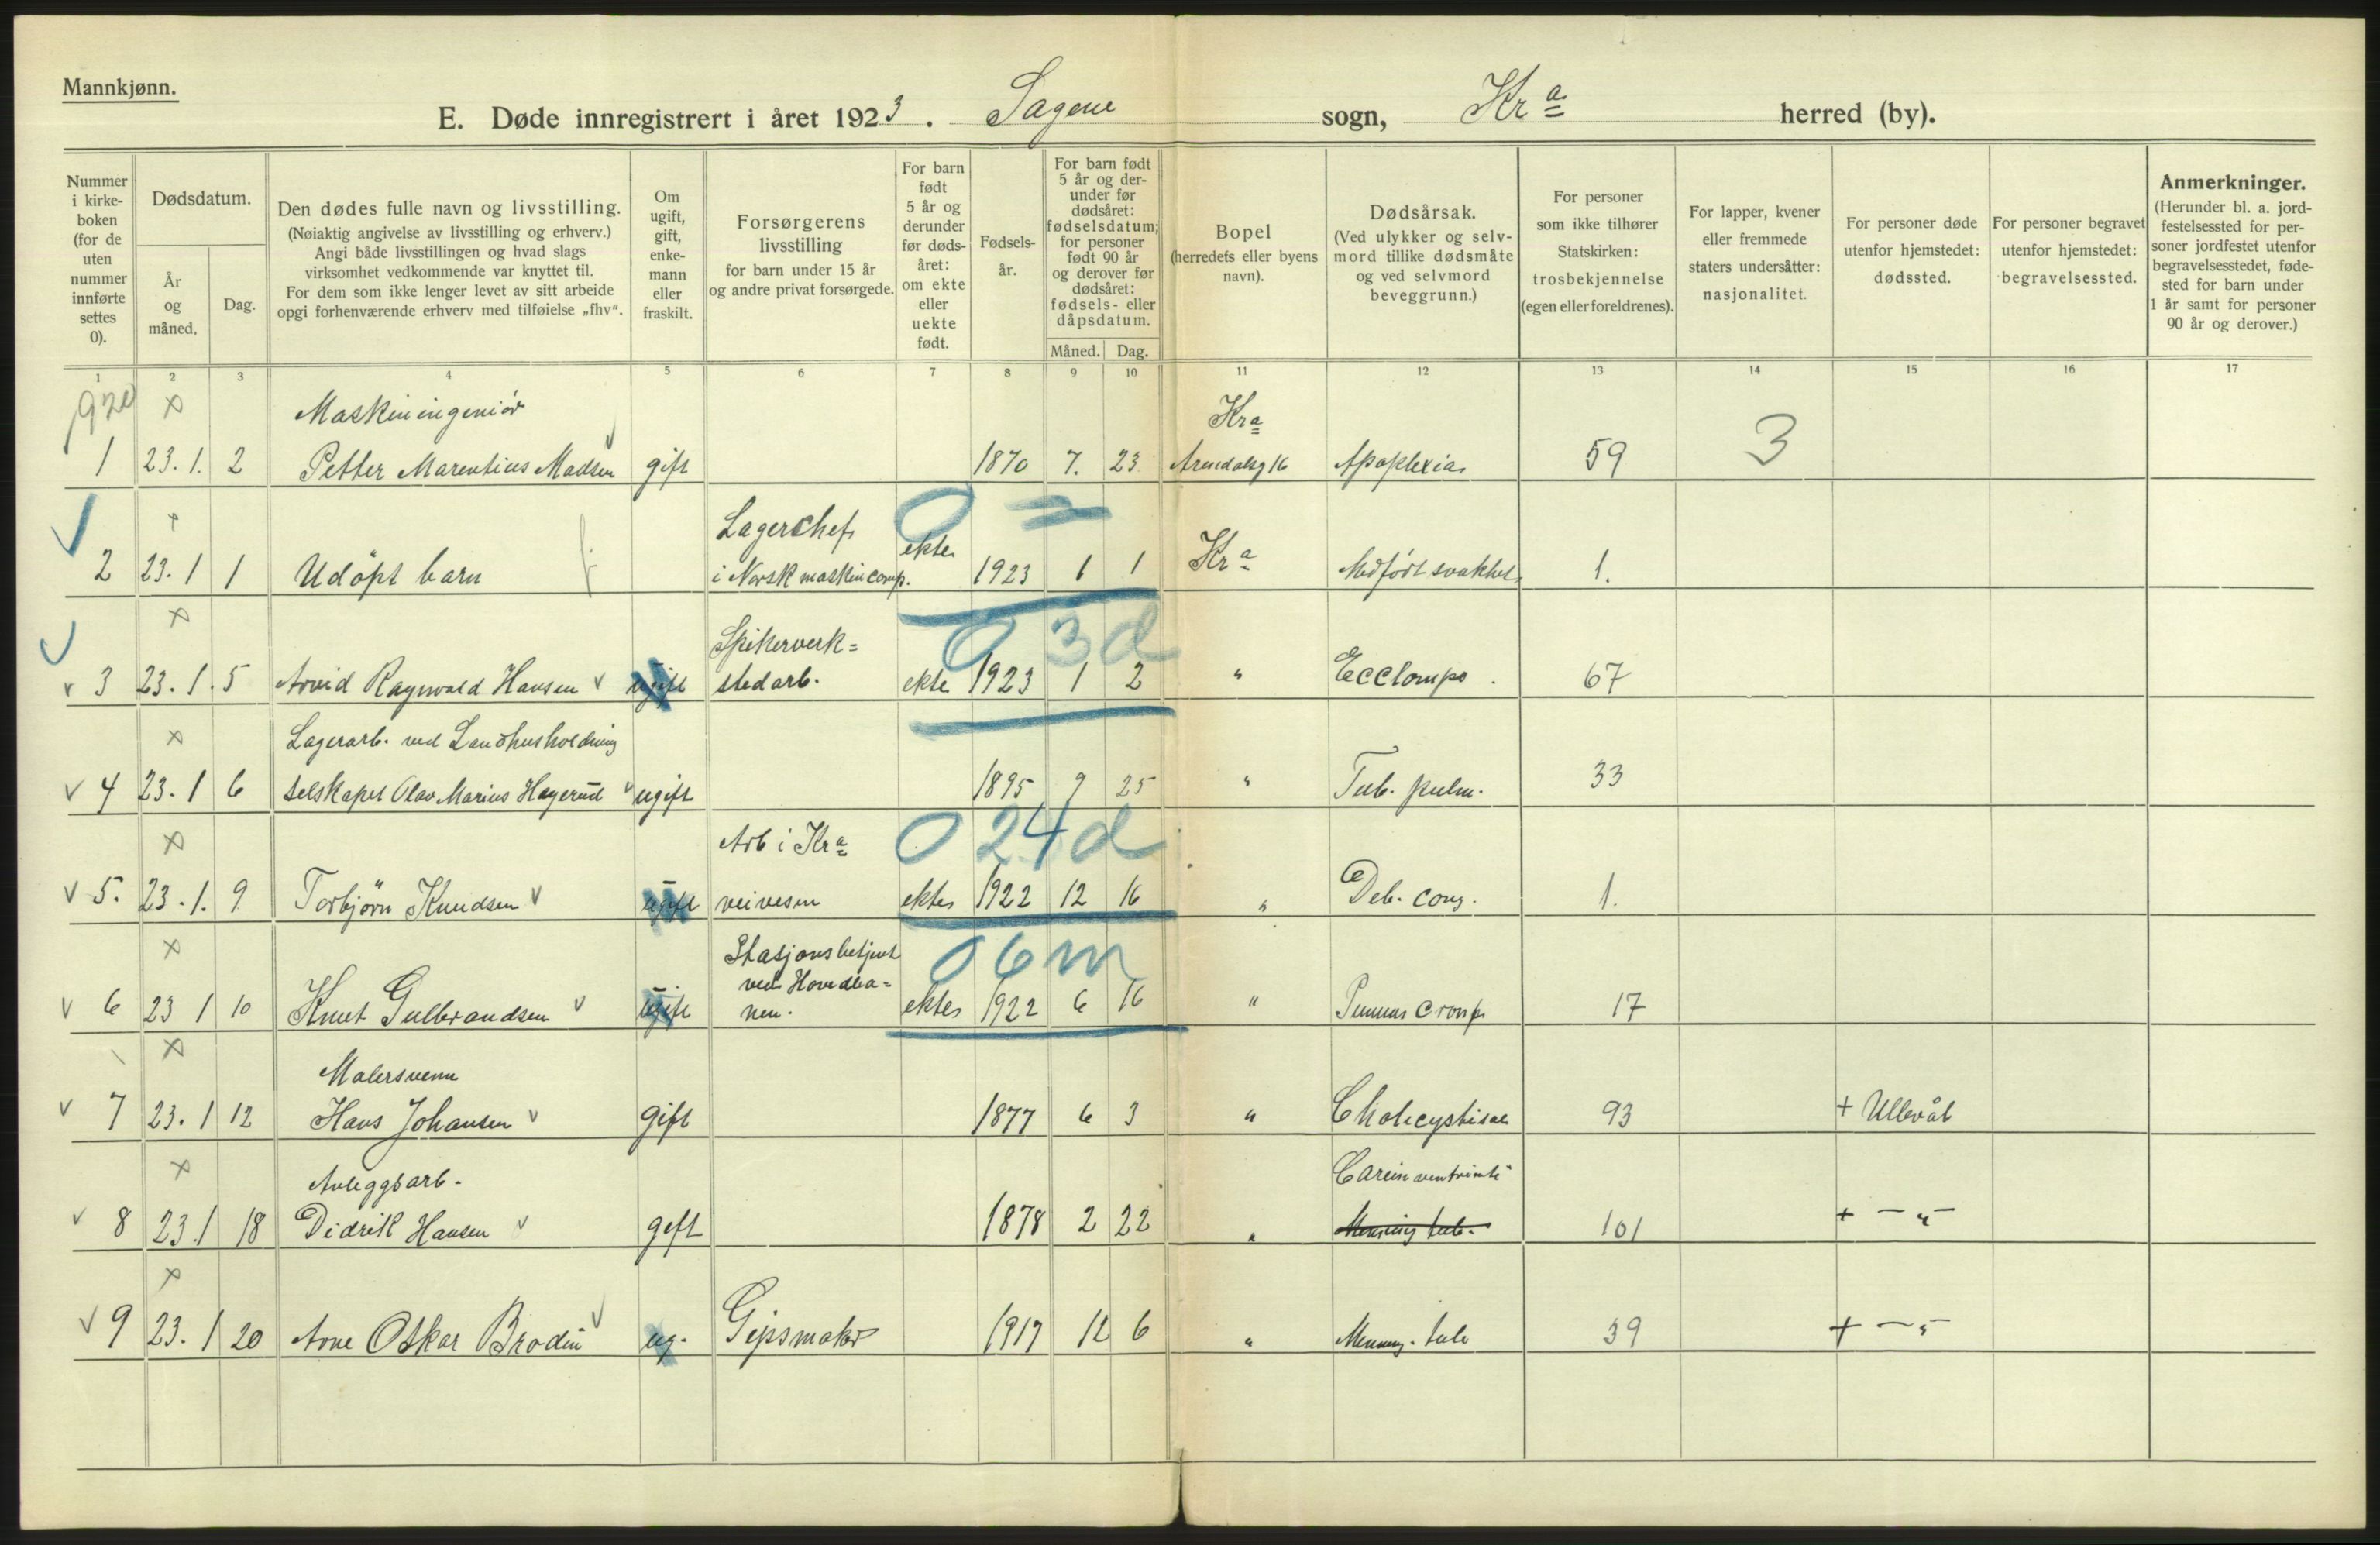 Mannkjønn.
E. Døde innregistrert i året 1923. Sagene sogn, Kra herred (by).
Nummer i kirkeboken (for de uten nummer innførte settes 0).
Dødsdatum.
År og måned.
Dag.
Den dødes fulle navn og livsstilling.
(Nøiaktig angivelse av livsstilling og erhverv.)
Angi både livsstillingen og hvad slags
virksomhet vedkommende var knyttet til.
For dem som ikke lenger levet av sitt arbeide
opgi forhenværende erhverv med tilføielse „fhv“.
Om ugift, gift, enkemann eller fraskilt.
Forsørgerens livsstilling
for barn under 15 år
og andre privat forsørgede.
For barn født 5 år og derunder før dødsåret: om ekte eller uekte født.
Fødselsår.
For barn født 5 år og derunder før dødsåret: fødselsdatum; for personer født 90 år og derover før dødsåret: fødsels- eller dåpsdatum.
Måned. Dag.
Bopel
(herredets eller byens navn).
Dødsårsak.
(Ved ulykker og selvmord tillike dødsmåte og ved selvmord beveggrunn.)
For personer som ikke tilhører Statskirken: trosbekjennelse (egen eller foreldrenes).
For lapper, kvener eller fremmede staters undersåtter: nasjonalitet.
For personer døde utenfor hjemstedet: dødssted.
For personer begravet utenfor hjemstedet: begravelsessted.
Anmerkninger.
(Herunder bl. a. jordfestelsessted for personer jordfestet utenfor begravelsesstedet, fødested for barn under 1 år samt for personer 90 år og derover.)
1 2 3 4 5 6 7 8 9 10 11 12 13 14 15 16 17
920 x Maskiningeniør Kra
1 23.1. 2 Petter Marentius Madsen gift 1870 7. 23 Arendalsg 16 Apoplexia 59 3
Lagerchef 0
2 23.1 1 Udøpt barn i Norsk maskincomp. ekte 1923 1 1 Kra Medfødt svakhet 1.
x Spikerverk= 0 3 d
3 23.1. 5 Arvid Ragnvald Hansen ugift stedarb. ekte 1923 1 2 " Ecclamps. 67
x Lagerarb. ved Landhusholdning
4 23.1 6 selskapet Olav Marius Hagerud ugift 1895 9 25 " Tub. pulm. 33
x Arb i Kra 0 24 d
5. 23.1. 9 Torbjørn Knudsen ugift veivesen ekte 1922 12 16 " Deb. cong. 1.
x Stasjonsbetjent 0 6 m
ved Hovedba=
6 23 1 10 Knut Gulbrandsen ugift nen. ekte 1922 6 16 " 17
x Malersvenn
7 23.1 12 Hans Johansen gift 1877 6 3 " 93 + Ullevål
x Anleggsarb.
8 23.1 18 Didrik Hansen gift 1878 2 22 " Mening tub. 101 + — " —
x
9 23.1 20 Arne Oskar Brodin ug. Gipsmaker 1917 12 6 " Mening. tub 39 + — " —